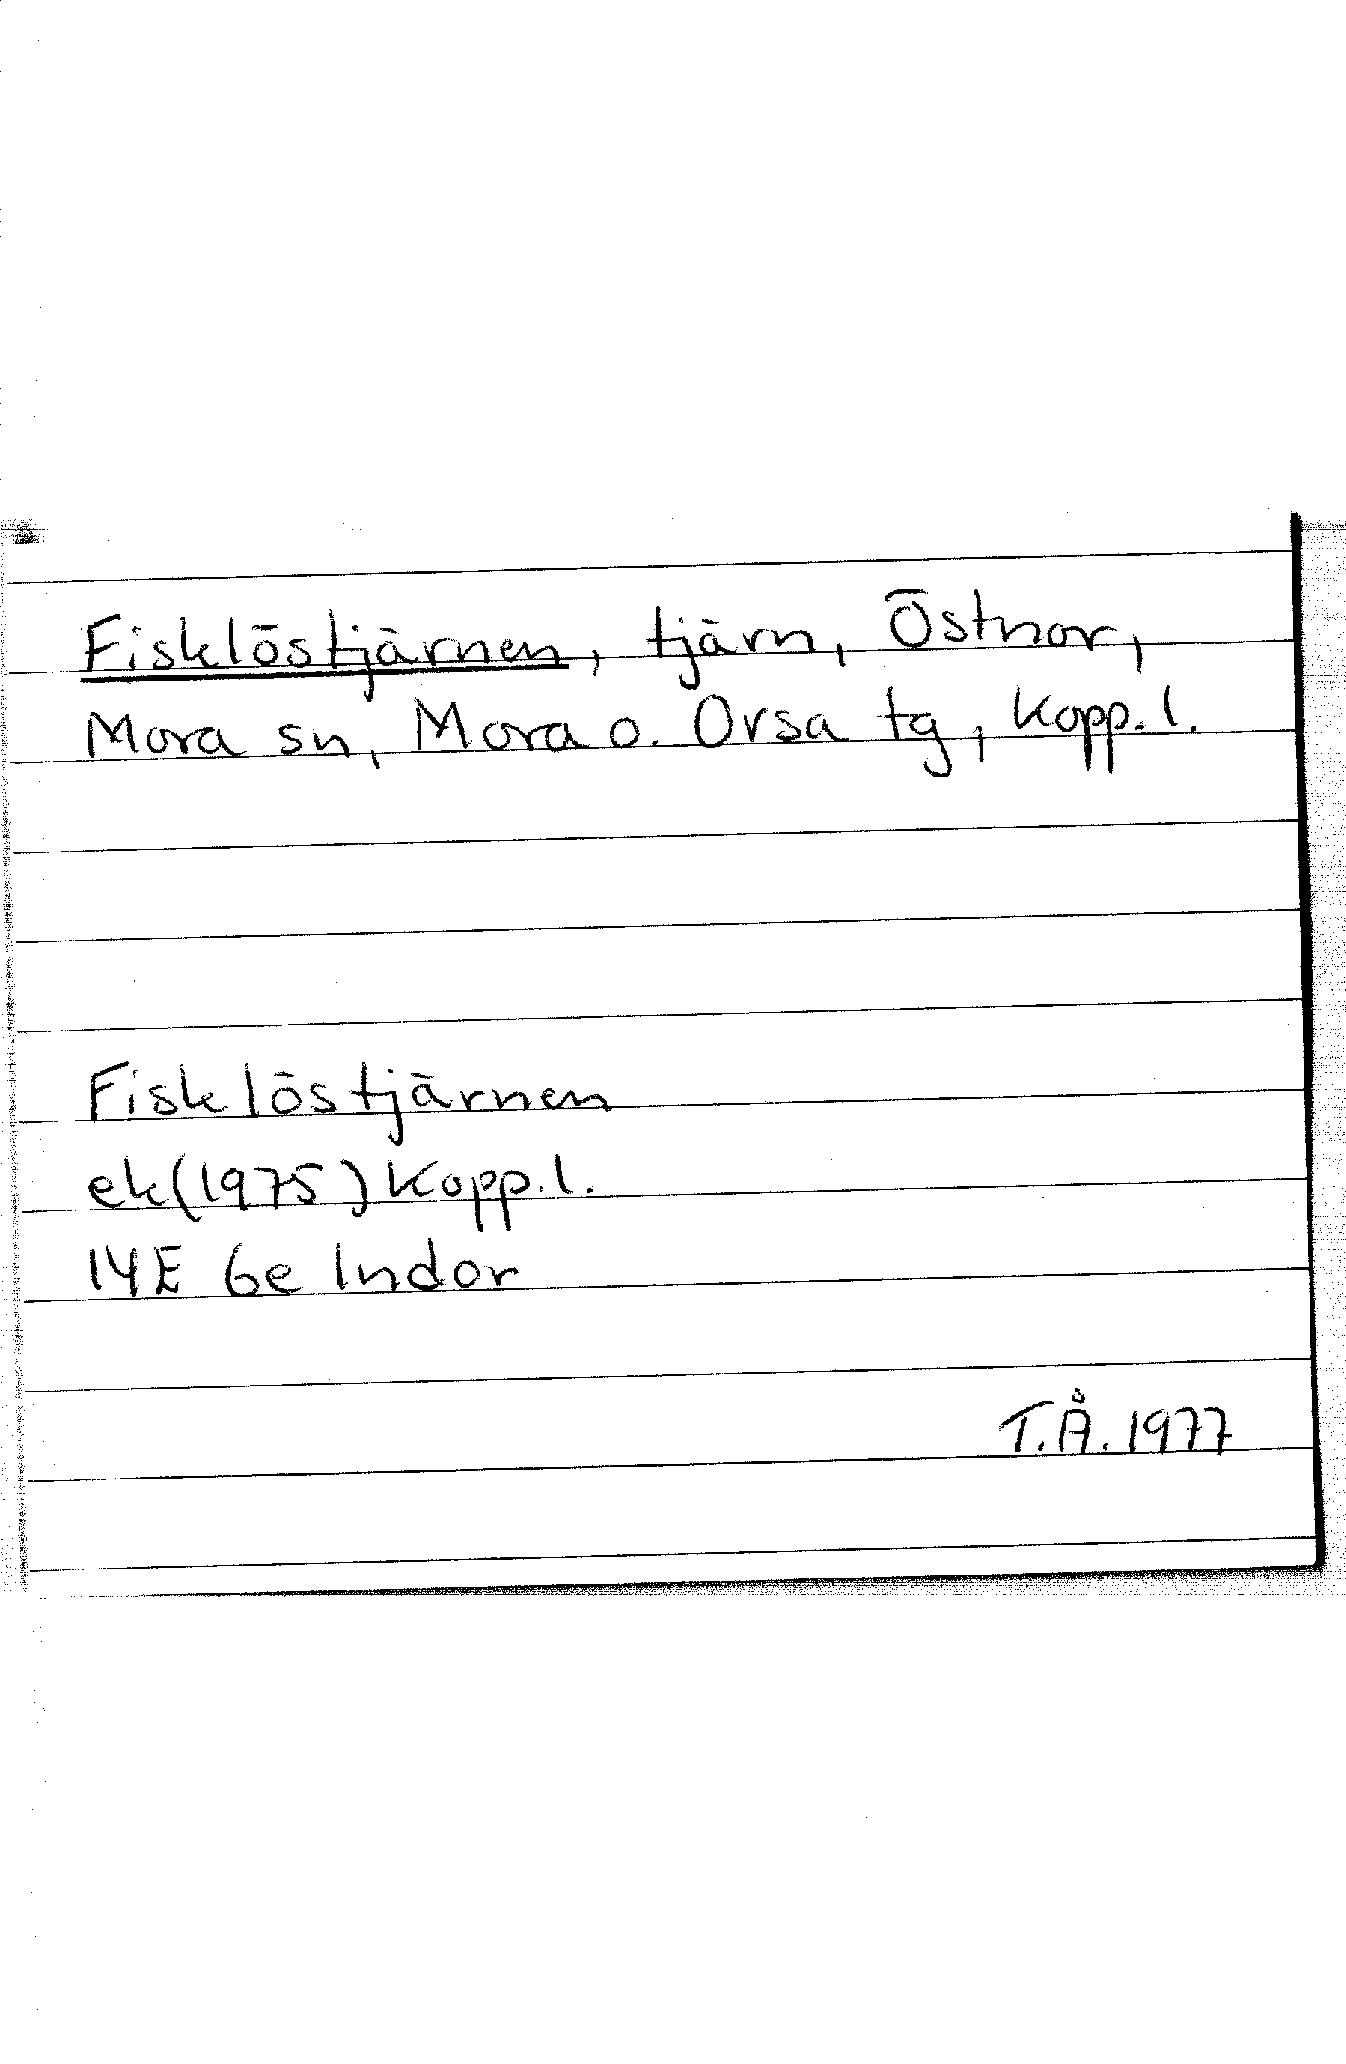 Fisklöstjärnen, tjärn, Östnor,
Mora sn, Mora o. Orsa tg, Kopp. l.
Fisklöstjärnen
ek (1975) Kopp. l.
14E 6e Indor
T.Å. 1977